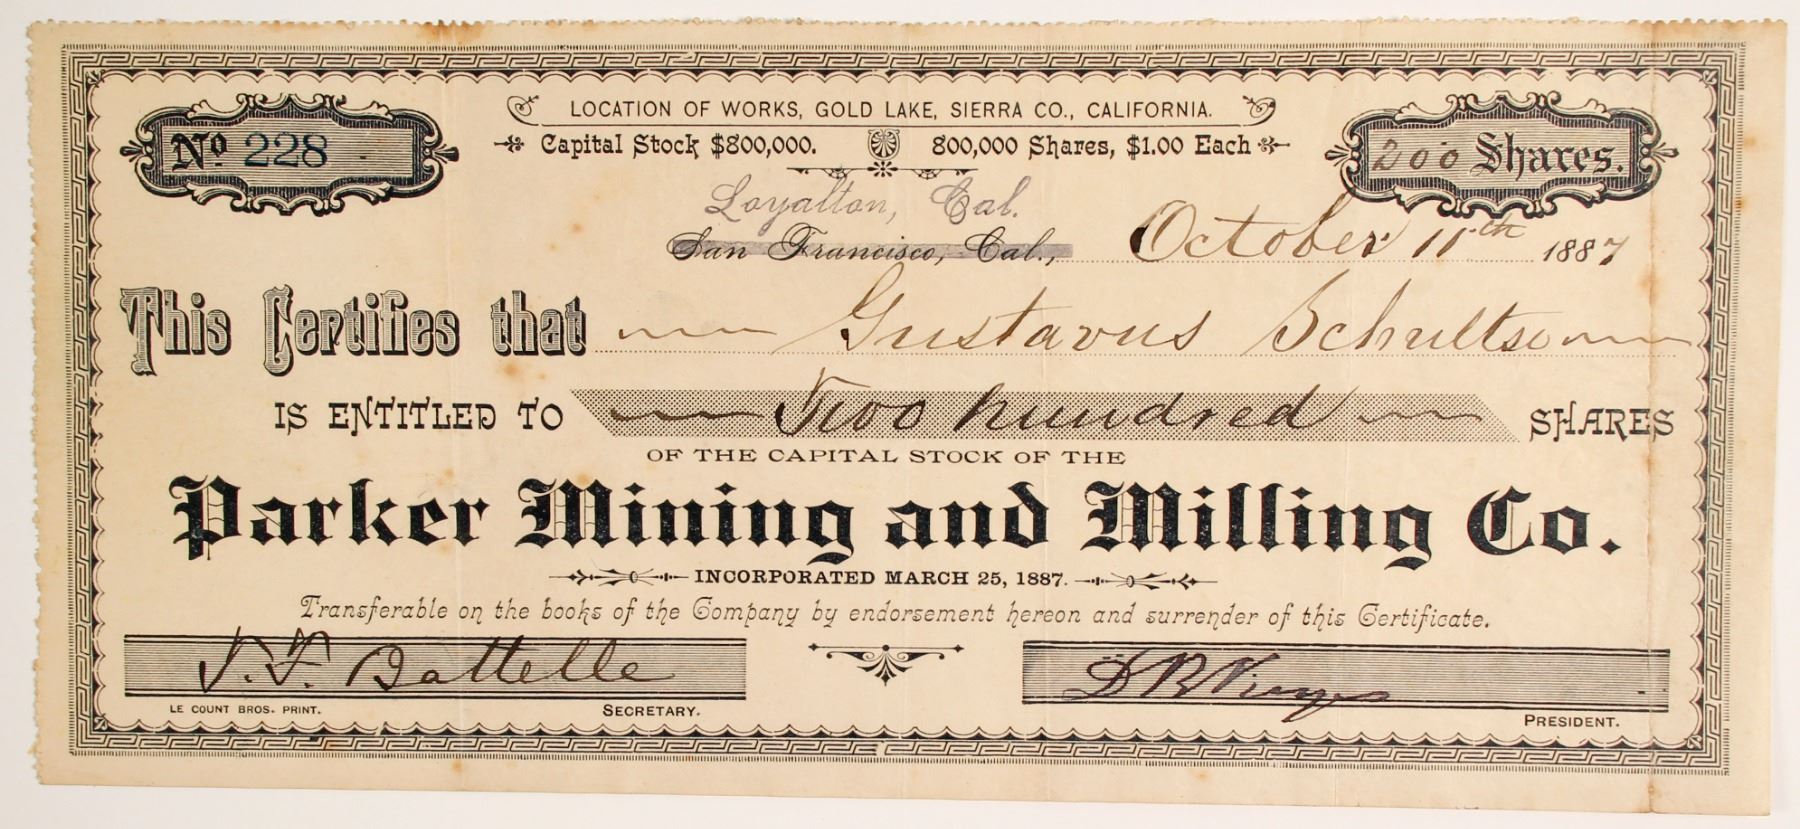 LOCATION OF WORKS, GOLD LAKE, SIERRA CO., CALIFORNIA.
No 228
Capital Stock $800,000. 800,000 Shares, $1.00 Each
200 Shares.
Loyalton, Cal.
San Francisco, Cal., October 11th 1887
This Certifies that Gustavus Schultse
IS ENTITLED TO Two hundred SHARES
OF THE CAPITAL STOCK OF THE
Parker Mining and Milling Co.
INCORPORATED MARCH 25, 1887.
Transferable on the books of the Company by endorsement hereon and surrender of this Certificate.
J. F. Battelle
LE COUNT BROS. PRINT. SECRETARY.
PRESIDENT.